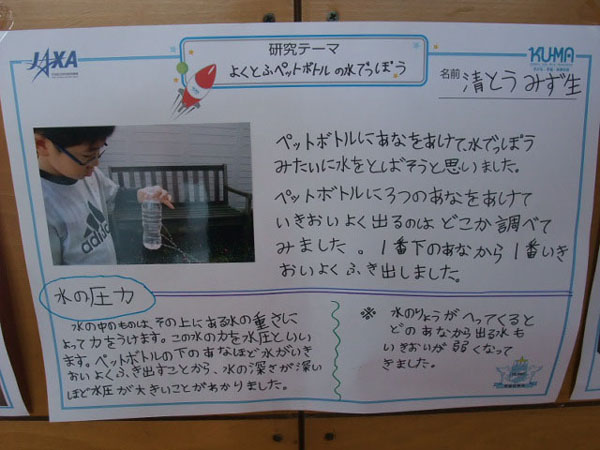 JAXA
研究テーマ
KU-MA
よくとぶペットボトルの水でっぽう
名前 清とうみず生
ペットボトルにあなをあけて、水でっぽう
みたいに水をとばそうと思いました。
ペットボトルに3つのあなをあけて
いきおいよく出るのはどこか調べて
みました。1番下のあなから1番いき
おいよくふき出しました。
水の圧力
水の中のものは、その上にある水の重さに
よって力をうけます。この水の力を水圧といい
ます。ペットボトルの下のあなほど水がいき
おいよくふき出すことから、水の深さが深い
ほど水圧が大きいことがわかりました。
※ 水のりょうがへってくると
どのあなから出る水も
いきおいが弱くなって
きました。
adidas